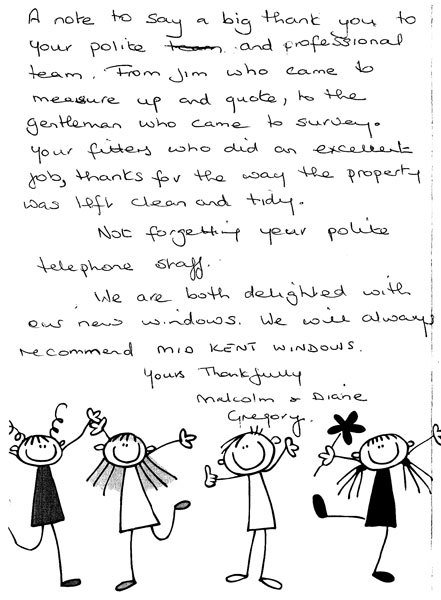 A note to say a big thank you to
your polite team and professional
team. From Jim who came to
measure up and quote, to the
gentleman who came to survey.
your fitters who did an excellent
job, thanks for the way the property
was left clean and tidy.
Not forgetting your polite
telephone staff.
We are both delighted with
our new windows. We will always
recommend MID KENT WINDOWS.
Yours Thankfully
Malcolm & Diane
Gregory.